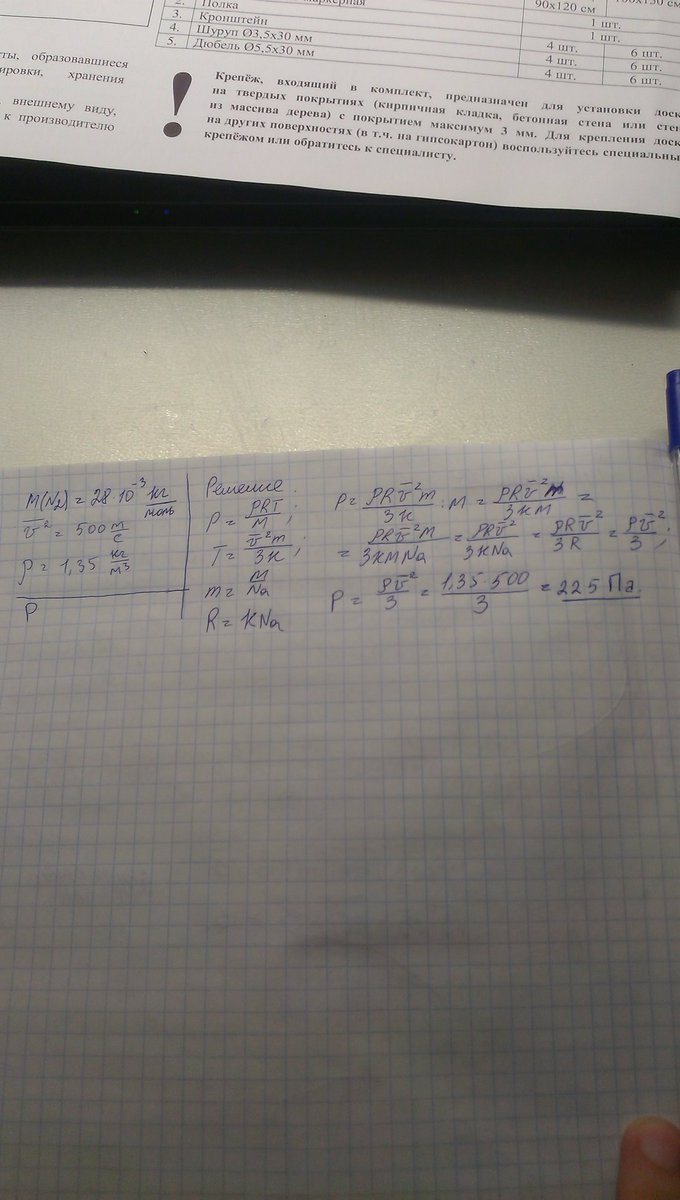 2. Полка
90х120 см
3. Кронштейн 1 шт.
4. Шуруп Ø3,5х30 мм 1 шт.
5. Дюбель Ø5,5х30 мм 4 шт. 6 шт.
4 шт. 6 шт.
4 шт. 6 шт.
образовавшиеся
хранения
внешнему виду,
к производителю
!
Крепёж, входящий в комплект, предназначен для установки
на твердых покрытиях (кирпичная кладка, бетонная стена или
из массива дерева) с покрытием максимум 3 мм. Для крепления
на других поверхностях (в т.ч. на гипсокартон) воспользуйтесь
крепёжом или обратитесь к специалисту.
M(N₂) = 28·10⁻³ кг/моль
v̅² = 500 м/с
ρ = 1,35 кг/м³
P
Решение:
P = ρRT/M;
T = v̅²m/3k;
m = M/Na
R = kNa
P = ρRv̅²m/3k : M = ρRv̅²m/3kM =
= ρRv̅²M/3kMNa = ρRv̅²/3kNa = ρRv̅²/3R = ρv̅²/3;
P = ρv̅²/3 = 1,35·500/3 = 225 Па.